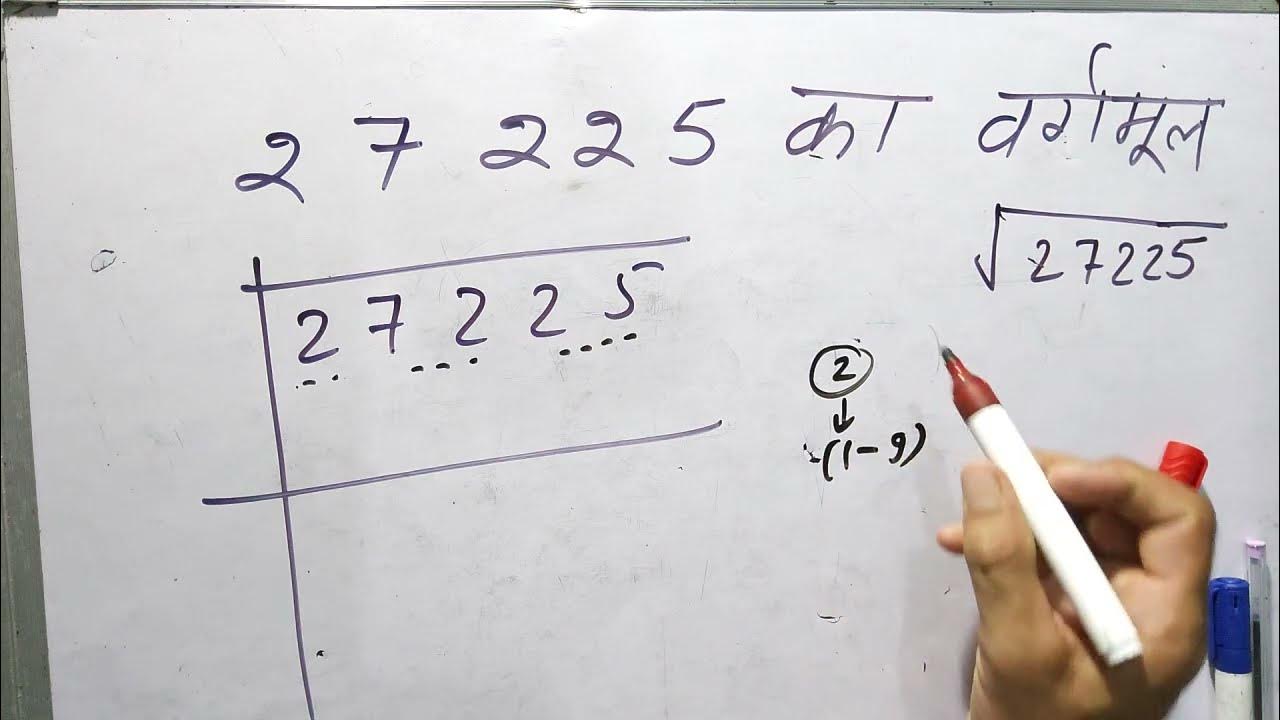 27225 का वर्गमूल
√27225
27225
2
↓
(1-9)